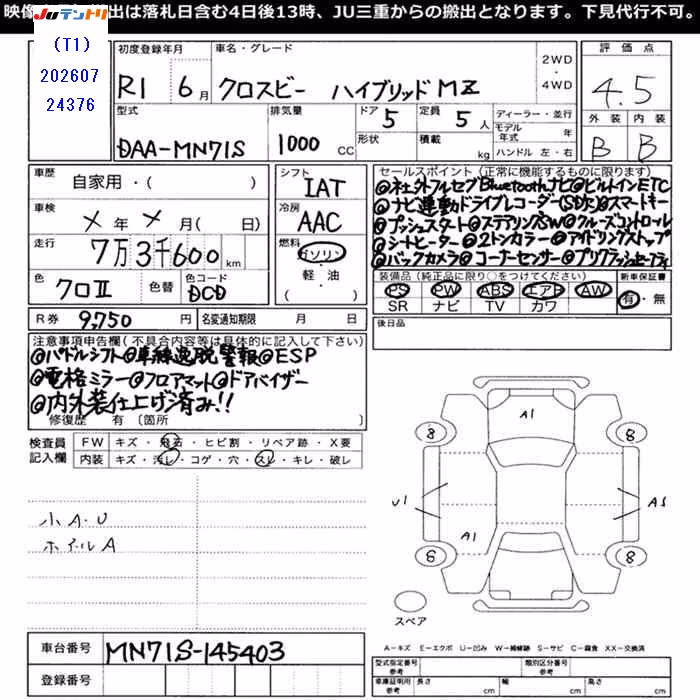 映像 出は落札日含む4日後13時、JU三重からの搬出となります。下見代行不可。
JUテントリ
(T1)
202607
24376
初度登録年月
R1 6月
車名・グレード
クロスビー ハイブリッドMZ
2WD
・
4WD
評価点
4.5
外装 内装
B B
型式
DAA-MN71S
排気量
1000 CC
ドア 5
形状
定員 5人
積載 kg
ディーラー・並行
モデル年式 年
ハンドル 左・右
車歴 自家用・( )
車検 メ年メ月( 日)
走行 7万3千600km
色 クロII
色替
色コード DCD
シフト IAT
冷房 AAC
燃料 ガソリン
軽・油
( )
R券 9,750円
名変通知期限 月 日
セールスポイント(正常に機能するものに限ります)
@ネエ外フルセグBluetoothナビ@ビルトインETC
@ナビ連動ドライブレコーダー(SD無)@スマートキー
@プッシュスタート@ステアリングSW@クルーズコントロール
@シートヒーター@2トンカラー@アイドリングストップ
@バックカメラ@コーナーセンサー@デュアルブレーキ
装備品(純正品に限り○をつけてください)
PS PW ABS エアB AW
SR ナビ TV カワ
新車保証書
有・無
後日品
注意事項申告欄(不具合内容等は具体的に記入して下さい)
@パドルシフト@車線逸脱警報@ESP
@電格ミラー@フロアマット@ドアバイザー
@内外装仕上げ済み!!
修復歴 有〔箇所
検査員記入欄
FW キズ・飛石・ヒビ割・リペア跡・X要
内装 キズ・汚レ・コゲ・穴・スレ・キレ・破レ
小A.U
ホイルA
A1
8 8
U1 AS
A1
8 8
スペア
A-キズ E-エクボ U-凹み W-補修跡 S-サビ C-腐食 XX-交換済
車台番号 MN71S-145403
登録番号
型式指定番号 類別区分番号
車庫証明用参考 長さ cm 幅 cm 高さ cm